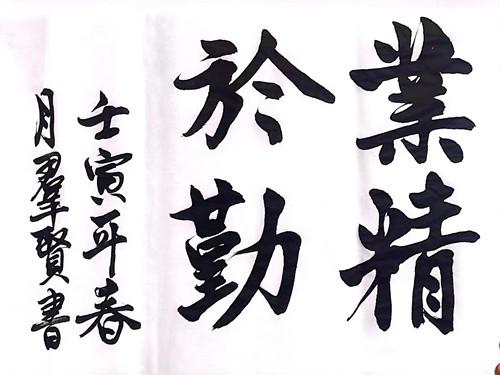 業精
於勤
壬寅年春
月羣賢書